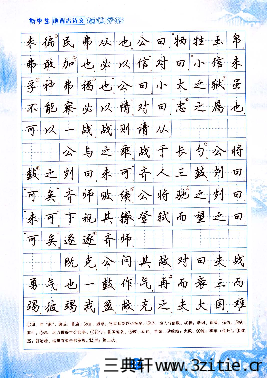 未徧民弗从也公曰牺牲玉帛
弗敢加也必以信对曰小信未
孚神弗福也公曰小大之狱虽
不能察必以情对曰忠之属也
可以一战战则请从
公与之乘战于长勺公将
鼓之刿曰未可齐人三鼓刿曰
可矣齐师败绩公将驰之刿曰
未可下视其辙登轼而望之曰
可矣遂逐齐师
既克公问其故对曰夫战
勇气也一鼓作气再而衰三而
竭彼竭我盈故克之夫大国难
三典轩 www.3zitie.cn